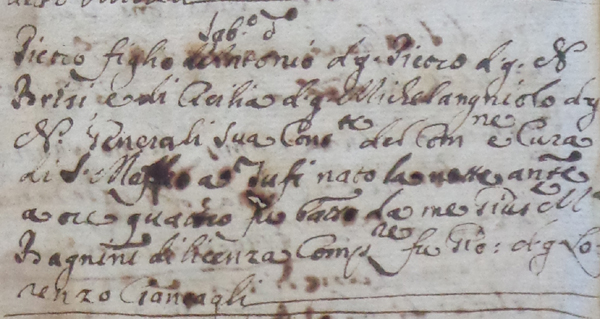 Sab.º d.º
Pietro figlio d'Antonio d.q. Pietro d.q. N.
Brisi e di Cicilia d.q. Michelangniolo d.q.
N. Generali sua Cons.te del Com.ne e Cura
di S. a nato la notte ante
a ore quattro fu batto da me M.
Bagnini di licenza Comp.re fu Gio: d.q. Lo-
renzo Ciancagli